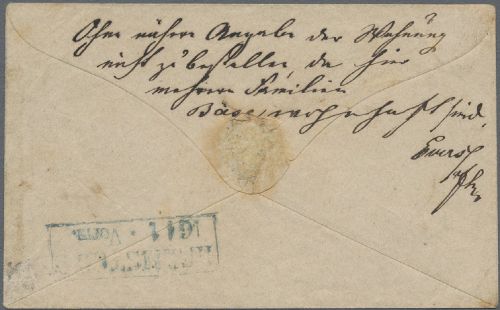 Ohne nähere Angabe der Wohnung
nicht zu bestellen da hier
mehrere Familien
Base, wohnhaft sind.
Evers